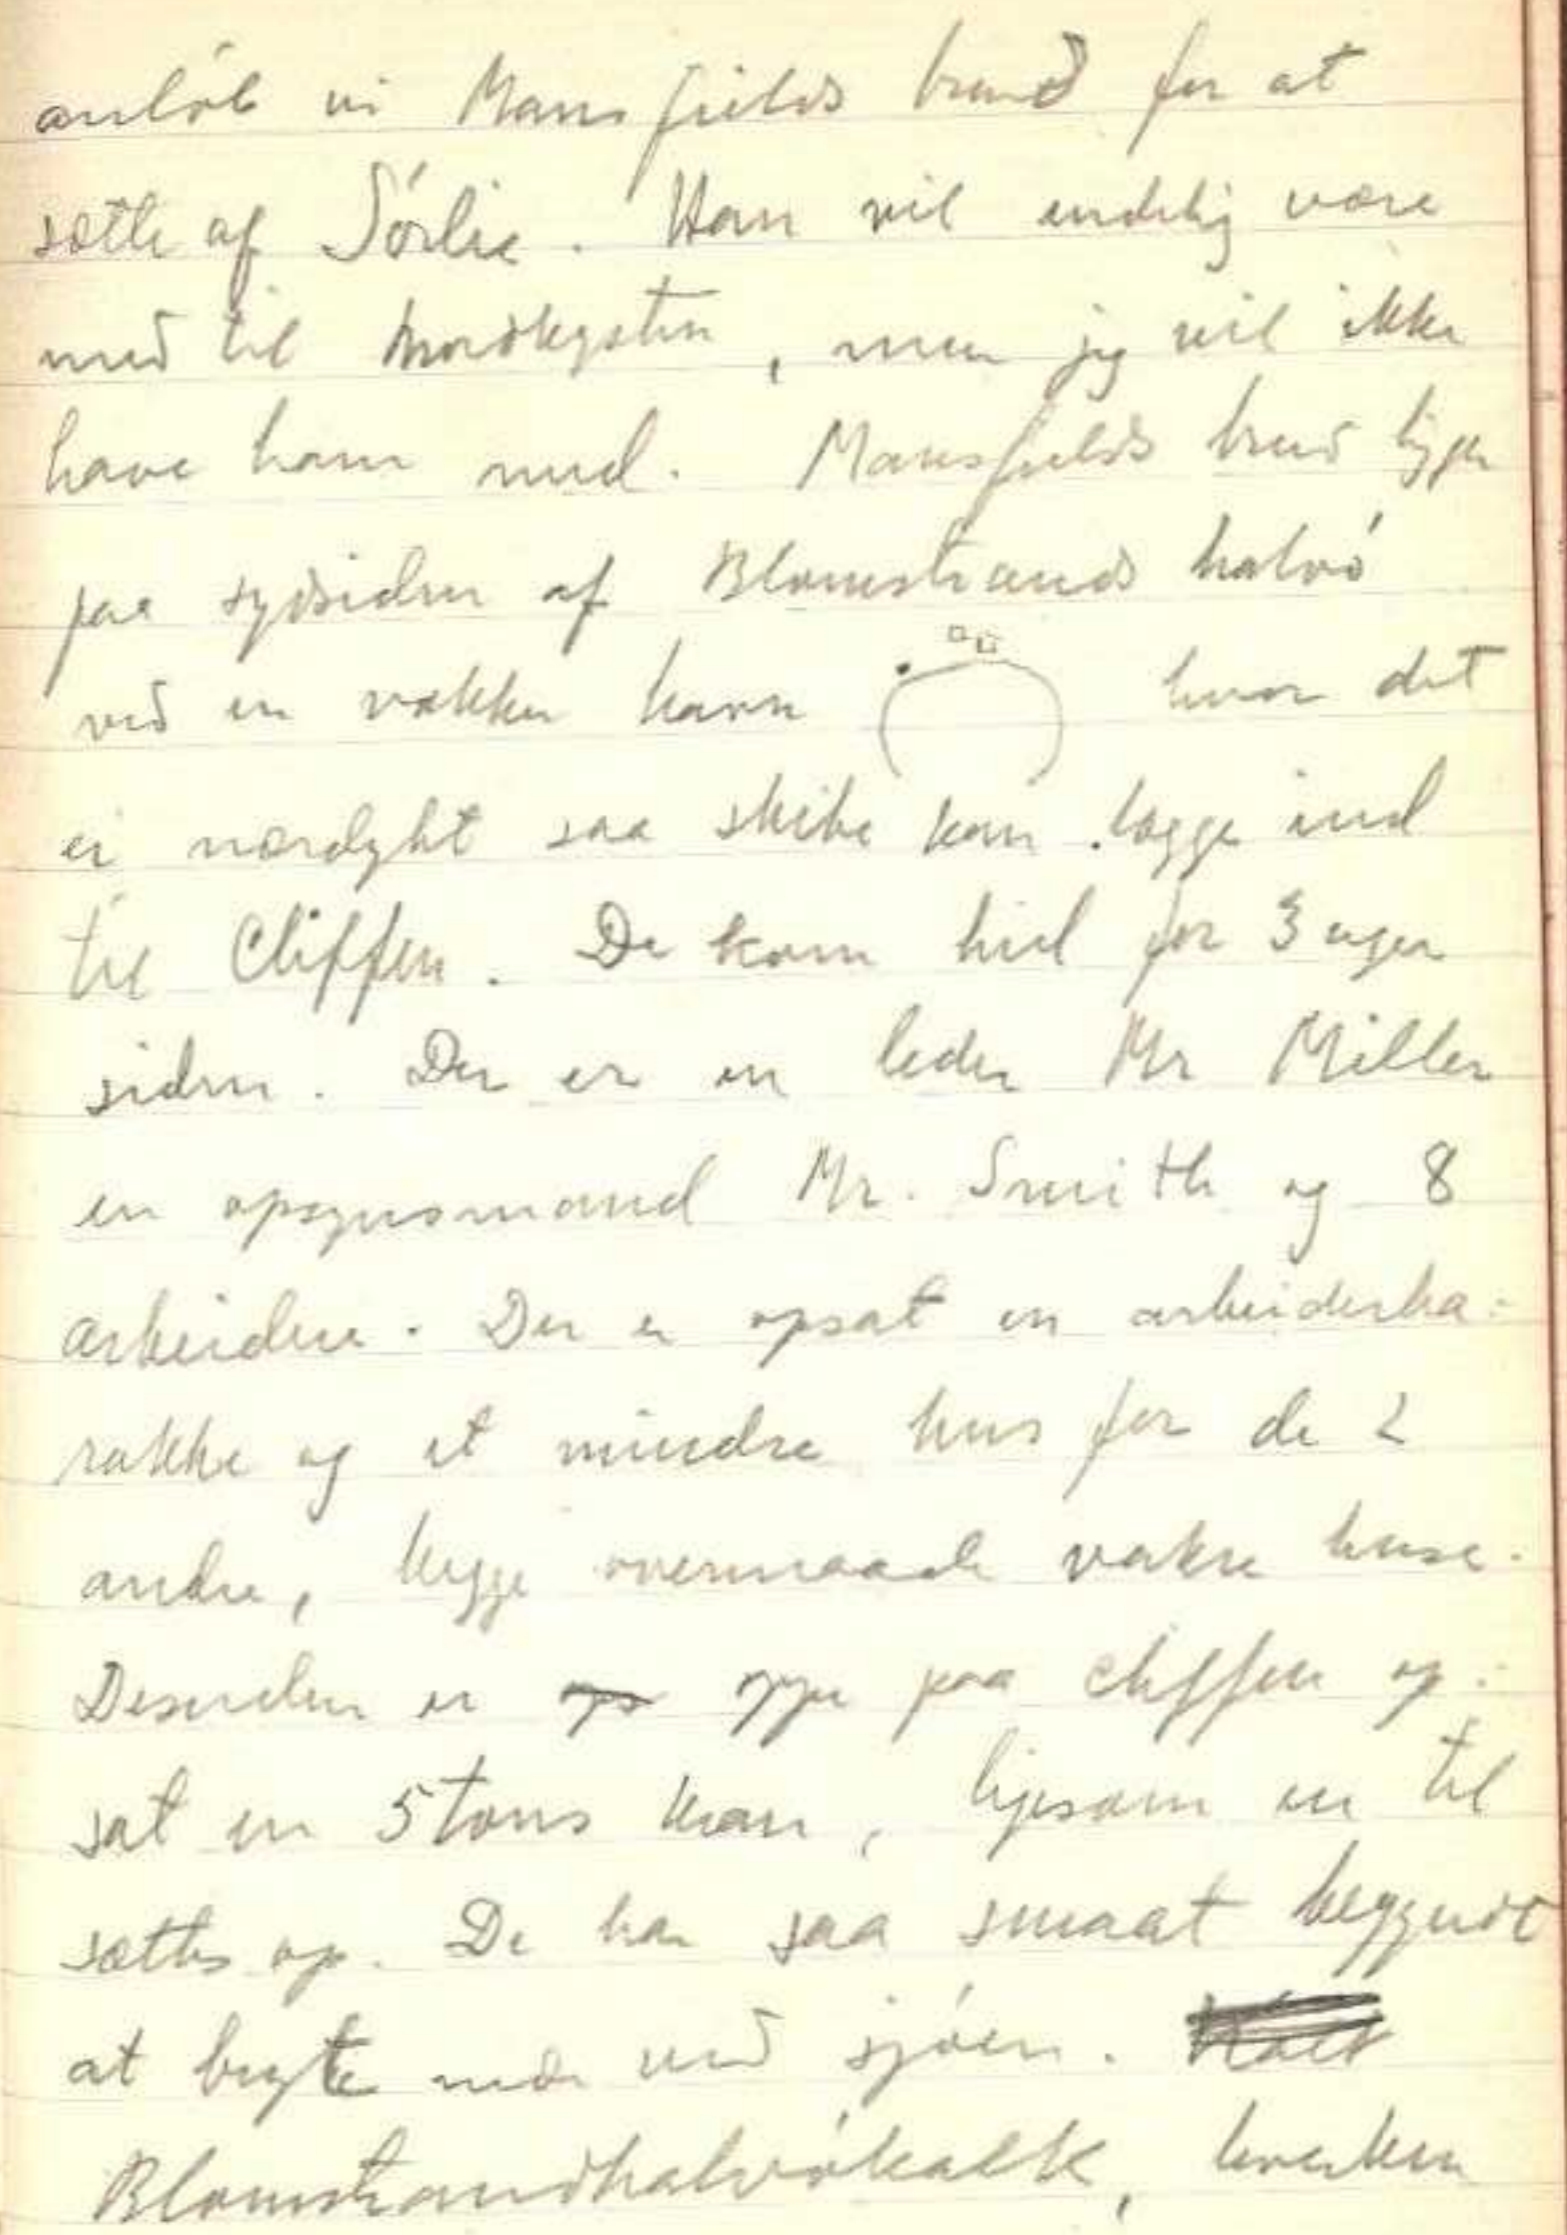 anløb vi Mansfields brud for at
sætte af Sørlie. Han vil endelig være
med til nordkysten, men jeg vil ikke
have ham med. Mansfields brud ligger
paa sydsiden af Blomstrands halvø
ved en vakker havn hvor det
er nærdybt saa skibe kan lægge ind
til Cliffen. De kom hid for 3 uger
siden. Der er en leder Mr Miller
en opsynsmand Mr. Smith og 8
arbeidere. Der er opsat en arbeiderba-
rakke og et mindre hus for de 2
andre, begge overmaade vakre huse.
Desuden er oppe paa cliffen op-
sat en 5 tons kran, ligesom en til
sættes op. De har saa smaat begyndt
at bryte nede ved sjøen.
Blomstrandhalvøkalk, hverken